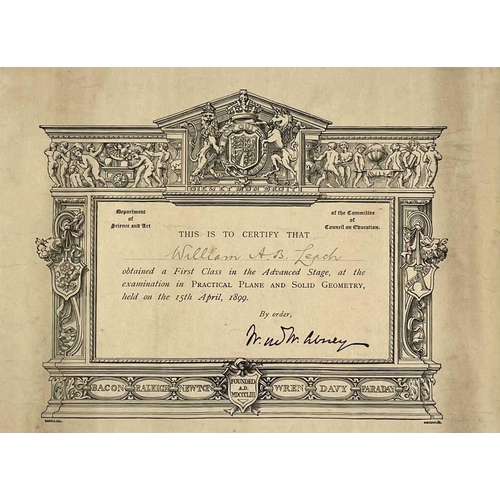 DIEU ET MON DROIT
Department
of
Science and Art
of the Committee
of
Council on Education.
THIS IS TO CERTIFY THAT
William A. B. Leach
obtained a First Class in the Advanced Stage, at the
examination in PRACTICAL PLANE AND SOLID GEOMETRY,
held on the 15th April, 1899.
By order,
W. de W. Abney
BACON RALEIGH NEWTON FOUNDED WREN DAVY FARADAY
A.D.
MDCCCLIII